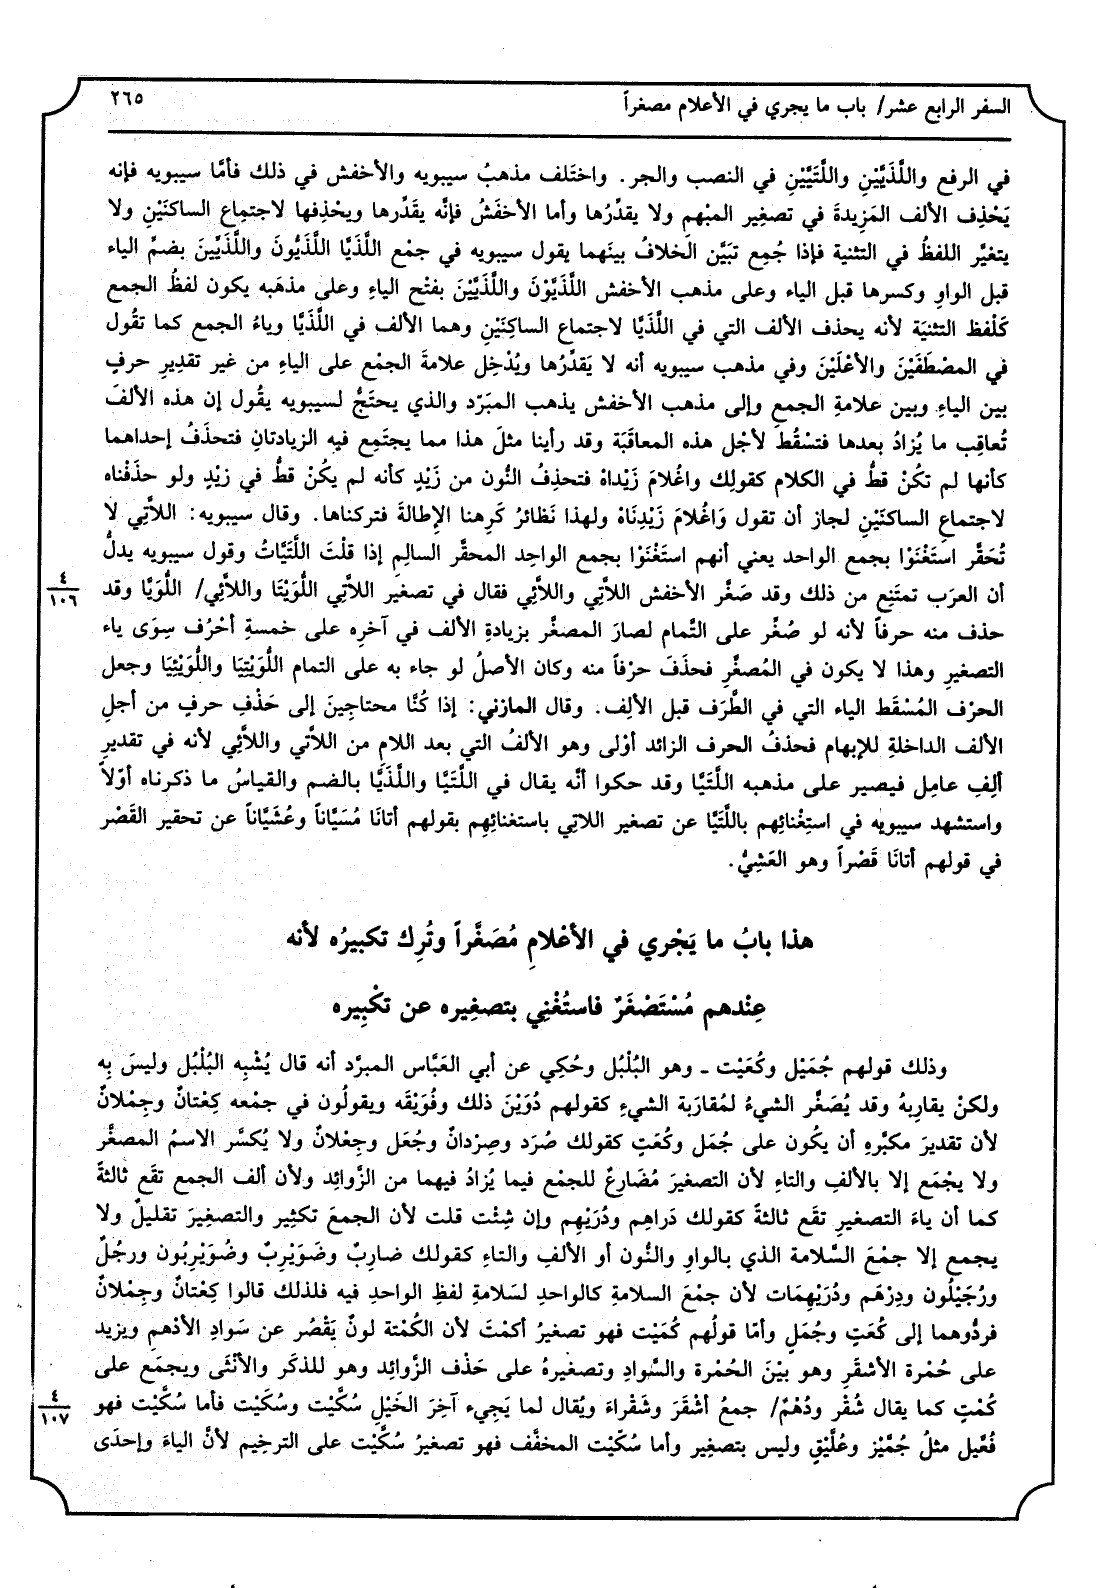 السفر الرابع عشر/ باب ما يجري في الأعلام مصغراً
٢٦٥
في الرفع واللَّذَيَّيْنِ واللَّتَيَّيْنِ في النصب والجر. واختَلف مذهبُ سيبويه والأخفش في ذلك فأمَّا سيبويه فإنه
يَحْذِف الألف المَزِيدةَ في تصغِير المبْهم ولا يقدِّرُها وأما الأخفَشُ فإنَّه يقَدِّرها ويحْذِفها لاجتِماع الساكنَيْنِ ولا
يتغيَّر اللفظُ في التثنية فإذا جُمِع تبَيَّن الخلافُ بينَهما يقول سيبويه في جمْع اللَّذَيَّا اللَّذَيُّونَ واللَّذَيِّينَ بضمِّ الياء
قبل الواوِ وكسرها قبل الياء وعلى مذهب الأخفش اللَّذَيَّوْنَ واللَّذَيَّيْنَ بفتْح الياءِ وعلى مذهَبه يكون لفظُ الجمع
كَلْفظ التثنيَة لأنه يحذف الألف التي في اللَّذَيَّا لاجتماع الساكِنَيْنِ وهما الألف في اللَّذَيَّا وياءُ الجمع كما تقُول
في المصْطَفَيْنَ والأعْلَيْنَ وفي مذهب سيبويه أنه لا يَقدِّرُها ويُدْخِل علامةَ الجمْع على الياءِ من غير تقدِيرِ حرفٍ
بين الياءِ وبين علامةِ الجمع وإلى مذهب الأخفش يذهب المبَرّد والذي يحتَجُّ لسيبويه يقُول إن هذه الألفَ
تُعاقِب ما يُزادُ بعدها فتسْقُط لأجْل هذه المعاقَبَة وقد رأينا مثلَ هذا مما يجتَمِع فيه الزيادتانِ فتحذَفُ إحداهما
كأنها لم تكُنْ قطُّ في الكلام كقولِك واغُلامَ زَيْداهْ فتحذِفُ النُّون من زَيْدٍ كأنه لم يكُنْ قطُّ في زيْدٍ ولو حذَفْناه
لاجتماعِ الساكنَيْنِ لجاز أن تقول وَاغُلامَ زَيْدِنَاهْ ولهذا نَظائرُ كَرِهنا الإطالةَ فتركناها. وقال سيبويه: اللاَّتِي لا
تُحَقَّر استَغْنَوْا بجمع الواحد يعني أنهم استَغْنَوْا بجمع الواحِد المحقَّر السالِمِ إذا قلْتَ اللَّتَيَّاتُ وقول سيبويه يدلُّ
أن العرَب تمتَنِع من ذلك وقد صَغَّر الأخفش اللاَّتِي واللاَّئِي فقال في تصغير اللاَّتِي اللُّوَيْتَا واللاَّئِي/ اللُّوَيَّا وقد
٤
١٠٦
حذف منه حرفاً لأنه لو صُغِّر على التَّمام لصارَ المصغَّر بزيادةِ الألف في آخرِه على خمسةِ أحْرُف سِوَى ياء
التصغيرِ وهذا لا يكون في المُصغَّرِ فحذَفَ حرْفاً منه وكان الأصلُ لو جاء به على التمام اللُّوَيْتِيَا واللُّوَيْئِيَا وجعل
الحرْف المُسْقَط الياء التي في الطَّرَف قبل الألِف. وقال المازِني: إذا كُنَّا محتاجِينَ إلى حَذْفِ حرفٍ من أجلِ
الألف الداخلةِ للإبهام فحذفُ الحرف الزائد أوْلى وهو الألفُ التي بعد اللام من اللاَّتي واللاَّئِي لأنه في تقديرِ
ألِفِ عامِل فيصير على مذهبه اللَّتَيَّا وقد حكوا أنَّه يقال في اللَّتَيَّا واللَّذَيَّا بالضم والقياسُ ما ذكرناه أوّلاً
واستشهد سيبويه في استِغْنائِهم باللَّتَيَّا عن تصغير اللاتِي باستغنائِهم بقولهم أتانَا مُسَيَّاناً وعُشَيَّاناً عن تحقير القَصْر
في قولهم أتانَا قَصْراً وهو العَشِيُّ.
هذا بابُ ما يَجْري في الأعْلامِ مُصَغَّراً وتُرِك تكبيرُه لأنه
عِنْدهم مُسْتَصْغَرٌ فاستُغْنِي بتصغِيره عن تكْبِيره
وذلك قولهم جُمَيْل وكُعَيْت ـ وهو البُلْبُل وحُكِي عن أبي العَبَّاس المبرَّد أنه قال يُشْبِه البُلْبُل وليسَ بِه
ولكنْ يقارِبهُ وقد يُصَغَّر الشيءُ لمُقارَبة الشيءِ كقولهم دُوَيْنَ ذلك وفُوَيْقَه ويقولُون في جمْعه كِعْتانٌ وجِمْلانٌ
لأن تقديرَ مكبَّرِهِ أن يكُون على جُمَل وكُعَتٍ كقولك صُرَد وصِرْدانٌ وجُعَل وجِعْلانٌ ولا يُكسَّر الاسمُ المصغَّر
ولا يجْمَع إلا بالألفِ والتاءِ لأن التصغيرَ مُضَارِعٌ للجمْع فيما يُزادُ فيهما من الزَّوائِد ولأن ألف الجمع تقَع ثالثةً
كما أن ياءَ التصغيرِ تقَع ثالثةً كقولك دَراهِم ودُرَيْهِم وإن شِئْت قلت لأن الجمعَ تكثِير والتصغِيرَ تقليلٌ ولا
يجمع إلا جمْعَ السَّلامة الذي بالواوِ والنُّون أو الألفِ والتاءِ كقولك ضارِبٌ وضَوَيْرِبٌ وضُوَيْرِبُون ورجُلٌ
ورُجَيْلُون ودِرْهَم ودُرَيْهِمَات لأن جمْعَ السلامةِ كالواحدِ لسَلامةِ لفظِ الواحدِ فيه فلذلك قالوا كِعْتانٌ وجِمْلانٌ
فردُّوهما إلى كُعَتٍ وجُمَلٍ وأمّا قولُهم كُمَيْت فهو تصغيرُ أكمْتَ لأن الكُمْتة لونٌ يَقْصُر عن سَوادِ الأدْهمِ ويزيد
على حُمْرة الأشقَرِ وهو بيْنَ الحُمْرة والسَّوادِ وتصغيرهُ على حَذْف الزَّوائِد وهو للذكَر والأنْثَى ويجمَع على
كُمْتٍ كما يقال شُقْر ودُهْمٌ/ جمعُ أشْقَرَ وشَقْراءَ ويُقال لما يَجِيء آخِرَ الخَيْلِ سُكَّيْت وسُكَيْت فأما سُكَّيْت فهو
٤
١٠٧
فُعَّيل مثلُ جُمَّيْز وعُلَّيْقٍ وليس بتصغِير وأما سُكَيْت المخفَّف فهو تصغيرُ سُكَّيْت على الترخِيم لأنَّ الياءَ وإحدَى